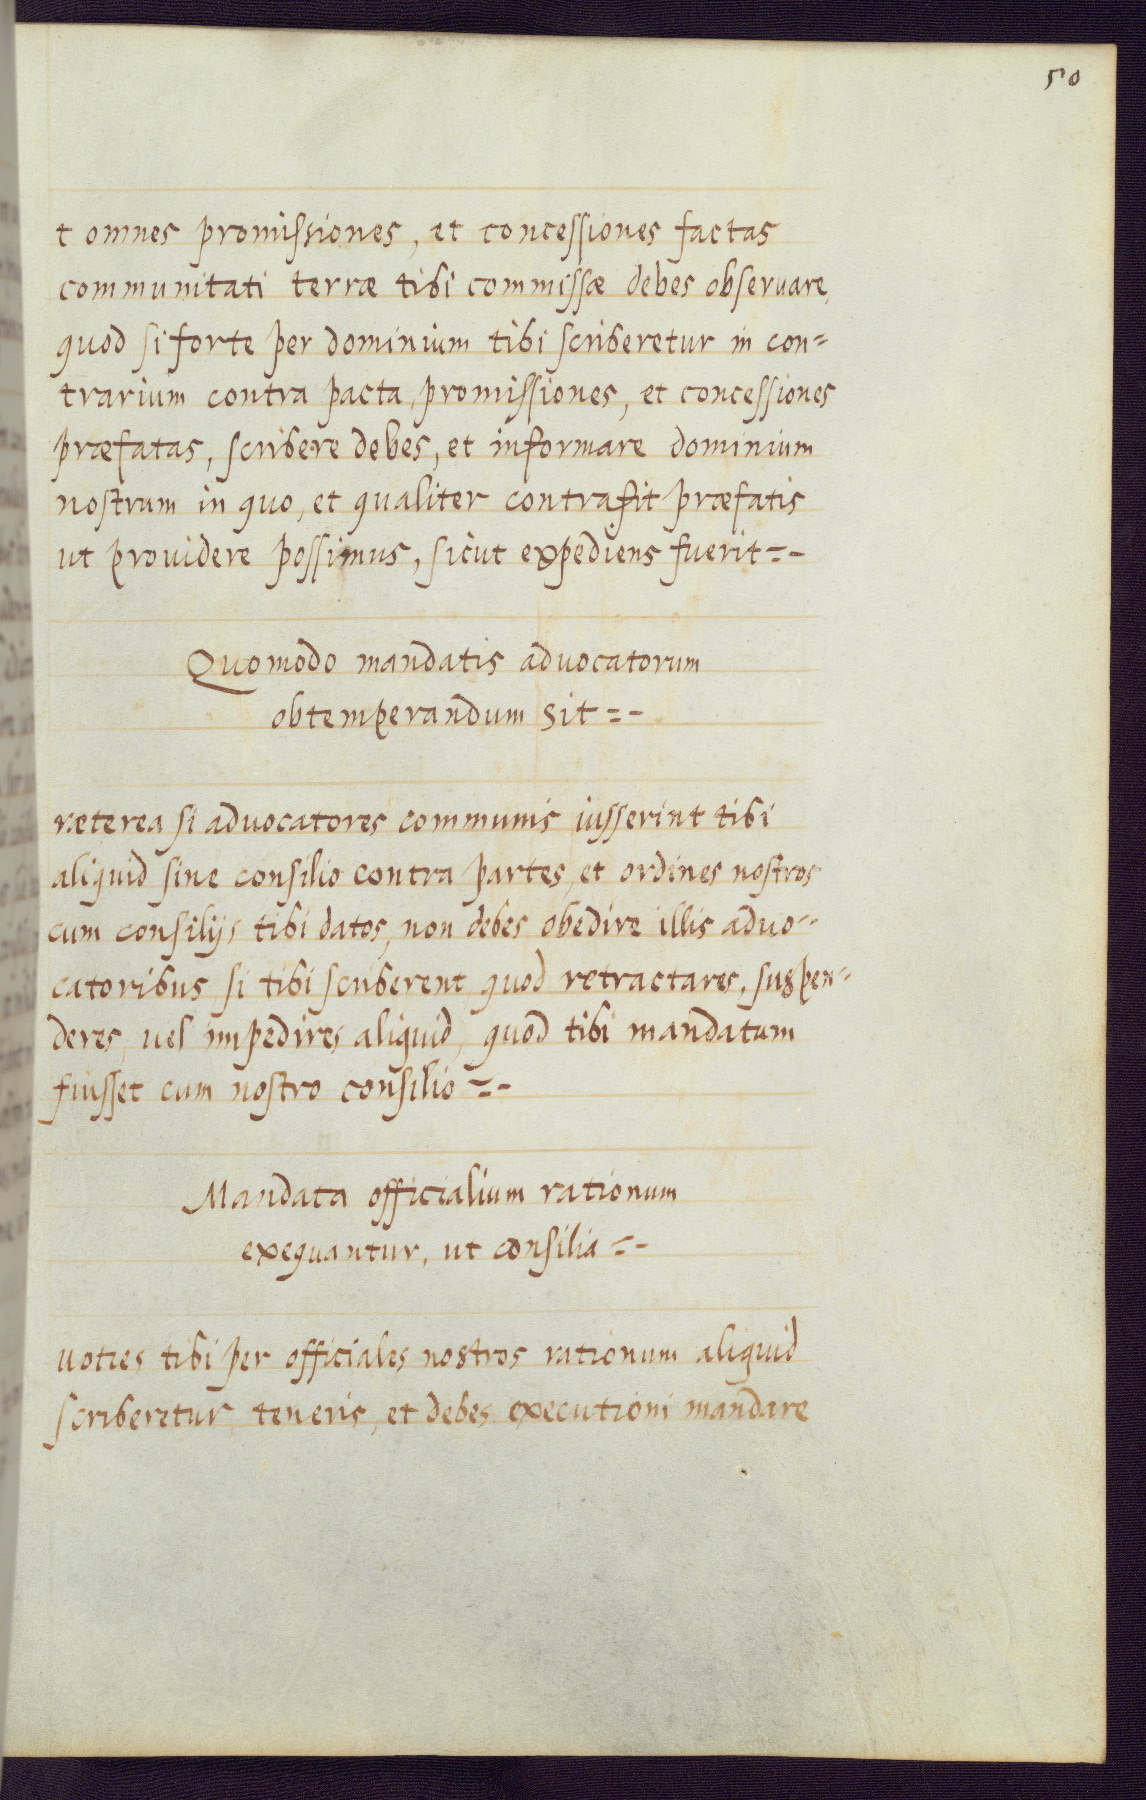 50
t omnes promissiones, et concessiones factas
communitati terræ tibi commissæ debes observare,
quod si forte per dominium tibi scriberetur in con=
trarium contra pacta, promissiones, et concessiones
præfatas, scribere debes, et informare dominium
nostrum in quo, et qualiter contrafit præfatis
ut providere possimus, sicut expediens fuerit=-
Quomodo mandatis advocatorum
obtemperandum sit=-
ræterea si advocatores communis iusserint tibi
aliquid sine consilio contra partes, et ordines nostros
cum consilijs tibi datos, non debes obedire illis advo=
catoribus si tibi scriberent, quod retractares, suspen=
deres, vel impedires aliquid, quod tibi mandatum
fuisset cum nostro consilio=-
Mandata officialium rationum
exequantur, ut consilia=-
uoties tibi per officiales nostros rationum aliquid
scriberetur, teneris, et debes executioni mandare